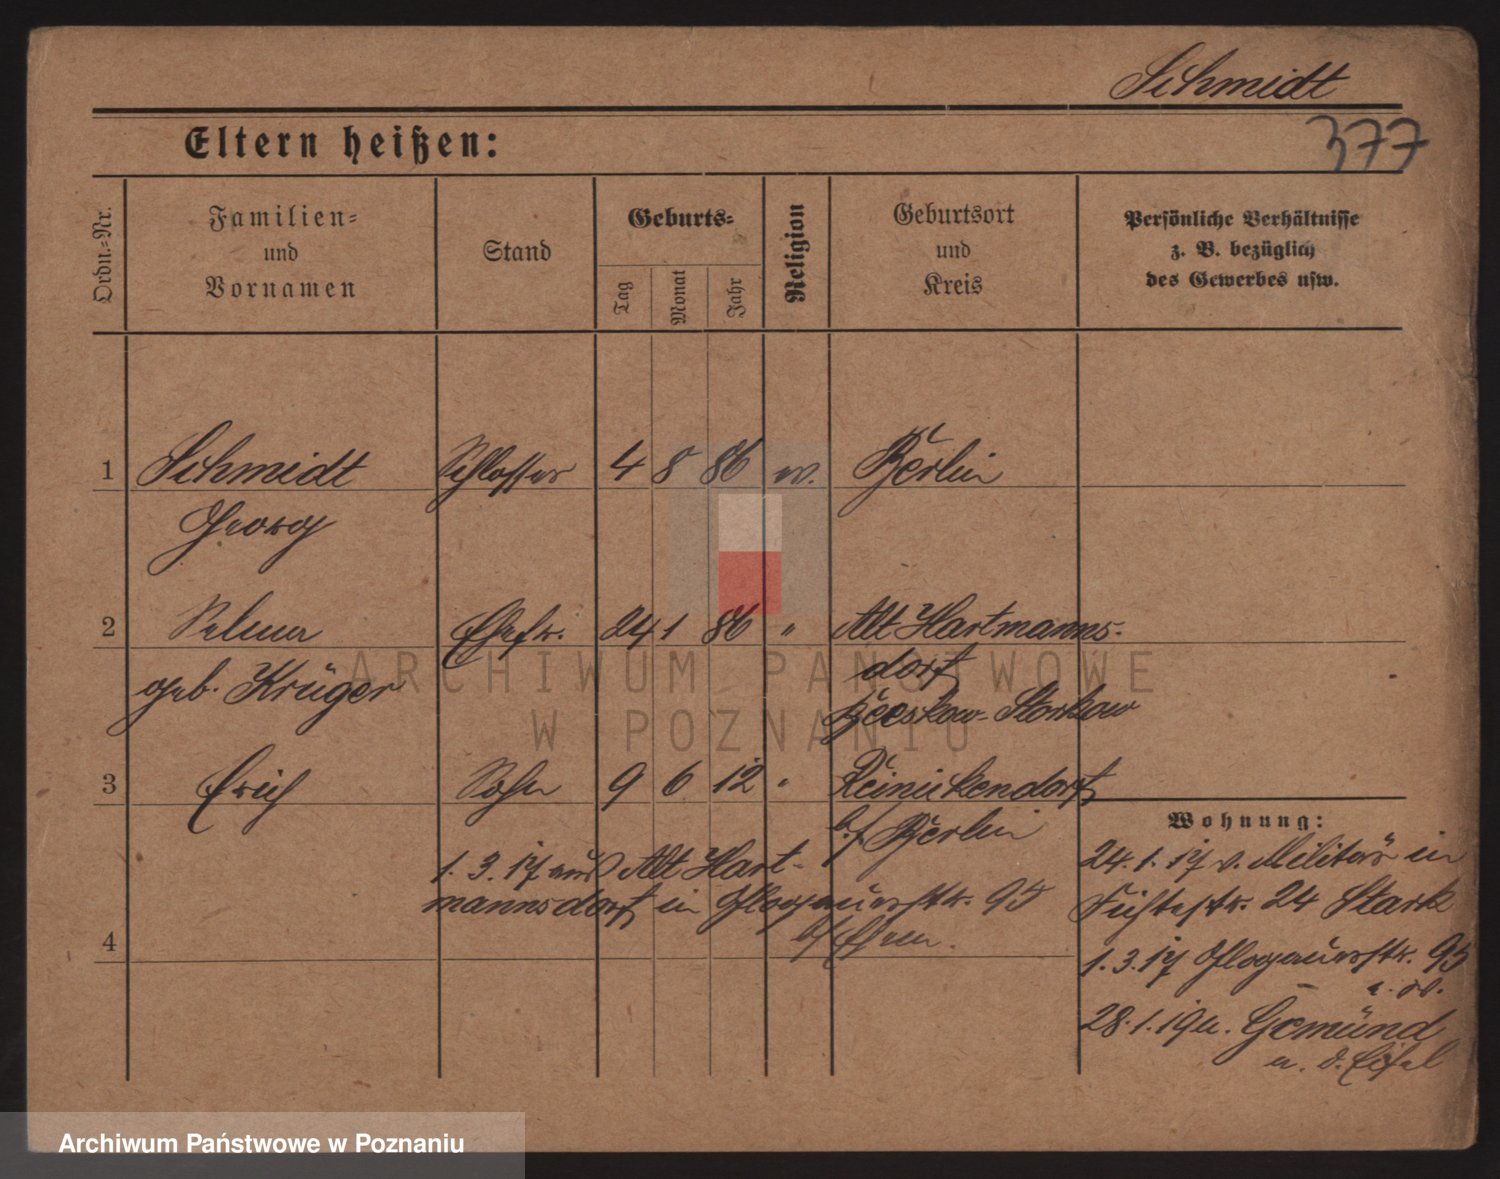 Schmidt
377
Eltern heißen:
Ordn.-Nr.
Familien-
und
Vornamen
Stand
Geburts-
Tag
Monat
Jahr
Religion
Geburtsort
und
Kreis
Persönliche Verhältnisse
z. B. bezüglich
des Gewerbes usw.
1 Schmidt Schlosser 4 8 86 ev. Berlin
Georg
2 Selma Ehefr. 24 1 86 " Alt Hartmanns-
geb. Krüger dorf
Beeskow-Storkow
3 Erich Sohn 9 6 12 " Reinickendorf
b/ Berlin
Wohnung:
1. 3. 17 aus Alt Hart-
mannsdorf in Glogauerstr. 95
b/
4
24. 1. 17 v. Militär in
Fichtestr. 24 Stark
1. 3. 17 Glogauerstr. 95
28. 1. 19 n. Gemünd
a. d. Eifel
ARCHIWUM PAŃSTWOWE
W POZNANIU
Archiwum Państwowe w Poznaniu